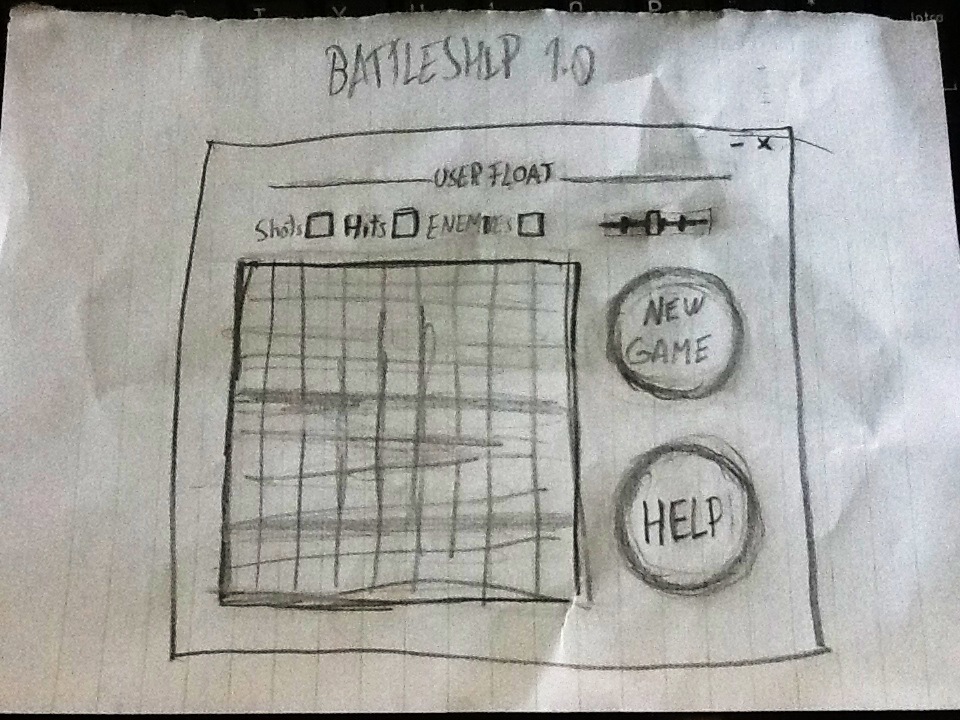 BATTLESHIP 1.0
- x
USER FLOAT
Shots Hits ENEMIES
NEW
GAME
HELP